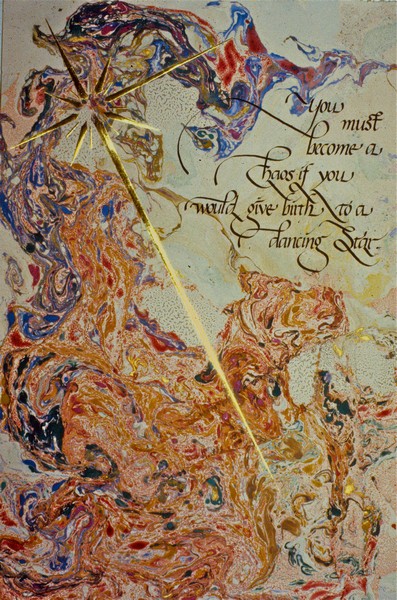 You
must
become a
Chaos if you
would give birth to a
dancing Star.